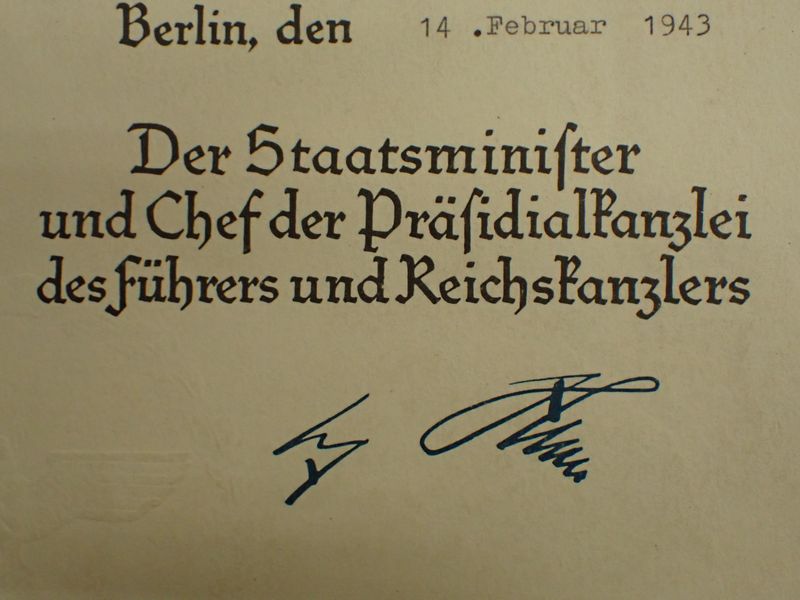 Berlin, den 14 .Februar 1943
Der Staatsminiſter
und Chef der Präſidialkanzlei
des Führers und Reichskanzlers